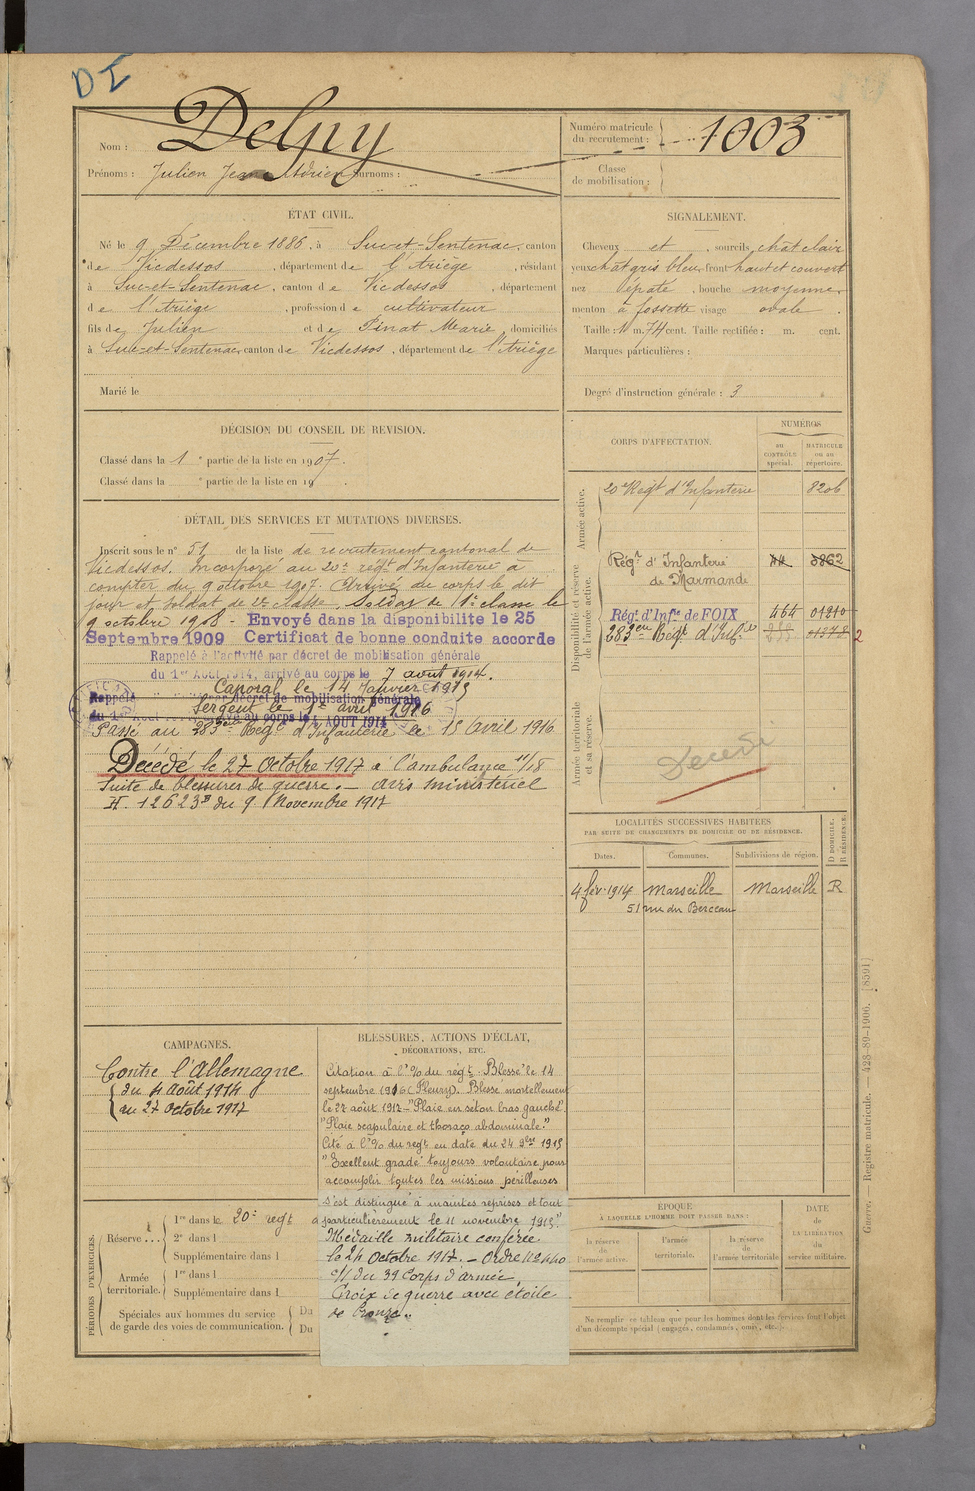 DI
Nom : Delpy
Prénoms : Julien Jean Adrien Surnoms :
Numéro matricule du recrutement : 1003
Classe de mobilisation :
ÉTAT CIVIL.
Né le 9 Décembre 1886, à Suc-et-Sentenac, canton
de Vicdessos, département de l'Ariège, résidant
à Suc-et-Sentenac, canton de Vicdessos, département
de l'Ariège, profession de cultivateur
fils de Julien et de Pinat Marie, domiciliés
à Suc-et-Sentenac, canton de Vicdessos, département de l'Ariège
Marié le
SIGNALEMENT.
Cheveux et sourcils chat clair
yeux chat gris bleu, front haut et couvert
nez épaté, bouche moyenne,
menton à fossette visage ovale.
Taille : 1 m. 74 cent. Taille rectifiée : m. cent.
Marques particulières :
Degré d'instruction générale : 3
DÉCISION DU CONSEIL DE REVISION.
Classé dans la 1e partie de la liste en 1907.
Classé dans la e partie de la liste en 19
DÉTAIL DES SERVICES ET MUTATIONS DIVERSES.
Inscrit sous le n° 51 de la liste de recrutement cantonal de
Vicdessos. Incorporé au 20e régt d'Infanterie à
compter du 9 octobre 1907. Arrivé au corps le dit
jour et soldat de 2e classe. Soldat de 1e classe le
9 octobre 1908 - Envoyé dans la disponibilite le 25
Septembre 1909 Certificat de bonne conduite accorde
Rappelé à l'activité par décret de mobilisation générale
du 1er Août 1914, arrivé au corps le 7 août 1914.
Caporal le 14 Janvier 1915
Rappelé décret de mobilisation générale
Sergent le 1er avril 1916
du 1er Août au corps le 4 AOUT 1914
Passé au 283eme Régt d'Infanterie le 15 Avril 1916
Décédé le 27 Octobre 1917 à l'ambulance 11/18
Suite de blessures de guerre. - avis ministériel
H. 12623B du 9 Novembre 1917
CORPS D'AFFECTATION.
NUMÉROS
au CONTRÔLE spécial.
MATRICULE ou au répertoire.
Armée active.
20e Régt d'Infanterie 8206
Disponibilité et réserve de l'armée active.
Régt d'Infanterie de Marmande 3862
Régt d'Infie de FOIX 464 01210
283eme Régt d'Infie 2
Armée territoriale et sa réserve.
Décédé
LOCALITÉS SUCCESSIVES HABITÉES
PAR SUITE DE CHANGEMENTS DE DOMICILE OU DE RÉSIDENCE.
Dates. Communes. Subdivisions de région. D DOMICILE. R RÉSIDENCE.
4 fév. 1914 Marseille Marseille R
51 rue du Berceau
CAMPAGNES.
Contre l'Allemagne
du 4 Août 1914
au 27 Octobre 1917
BLESSURES, ACTIONS D'ÉCLAT,
DÉCORATIONS, ETC.
Citation à l'% du régt. Blessé le 14
septembre 1916 (Fleury). Blessé mortellement
le 27 août 1917 - "Plaie en séton bras gauche".
"Plaie scapulaire et thoraco abdominale."
Cité à l'% du régt en date du 24 9bre 1915
"Excellent gradé toujours volontaire pour
accomplir toutes les missions périlleuses
s'est distingué à maintes reprises et tout
particulièrement le 11 novembre 1915."
Médaille militaire conférée
le 24 Octobre 1917. - Ordre
du 39 Corps d'armée
Croix de guerre avec étoile
de bronze.
PÉRIODES D'EXERCICES.
Réserve ...
1re dans le 20e régt
2e dans l
Supplémentaire dans l
Armée territoriale.
1re dans l
Supplémentaire dans l
Spéciales aux hommes du service
de garde des voies de communication.
Du
Du
ÉPOQUE
À LAQUELLE L'HOMME DOIT PASSER DANS :
la réserve de l'armée active.
l'armée territoriale.
la réserve de l'armée territoriale
DATE de LA LIBÉRATION du service militaire.
Ne remplir ce tableau que pour les hommes dont les services font l'objet
d'un décompte spécial (engagés, condamnés, omis, etc.).
Guerre. — Registre matricule. 428-89-1906. [8591]